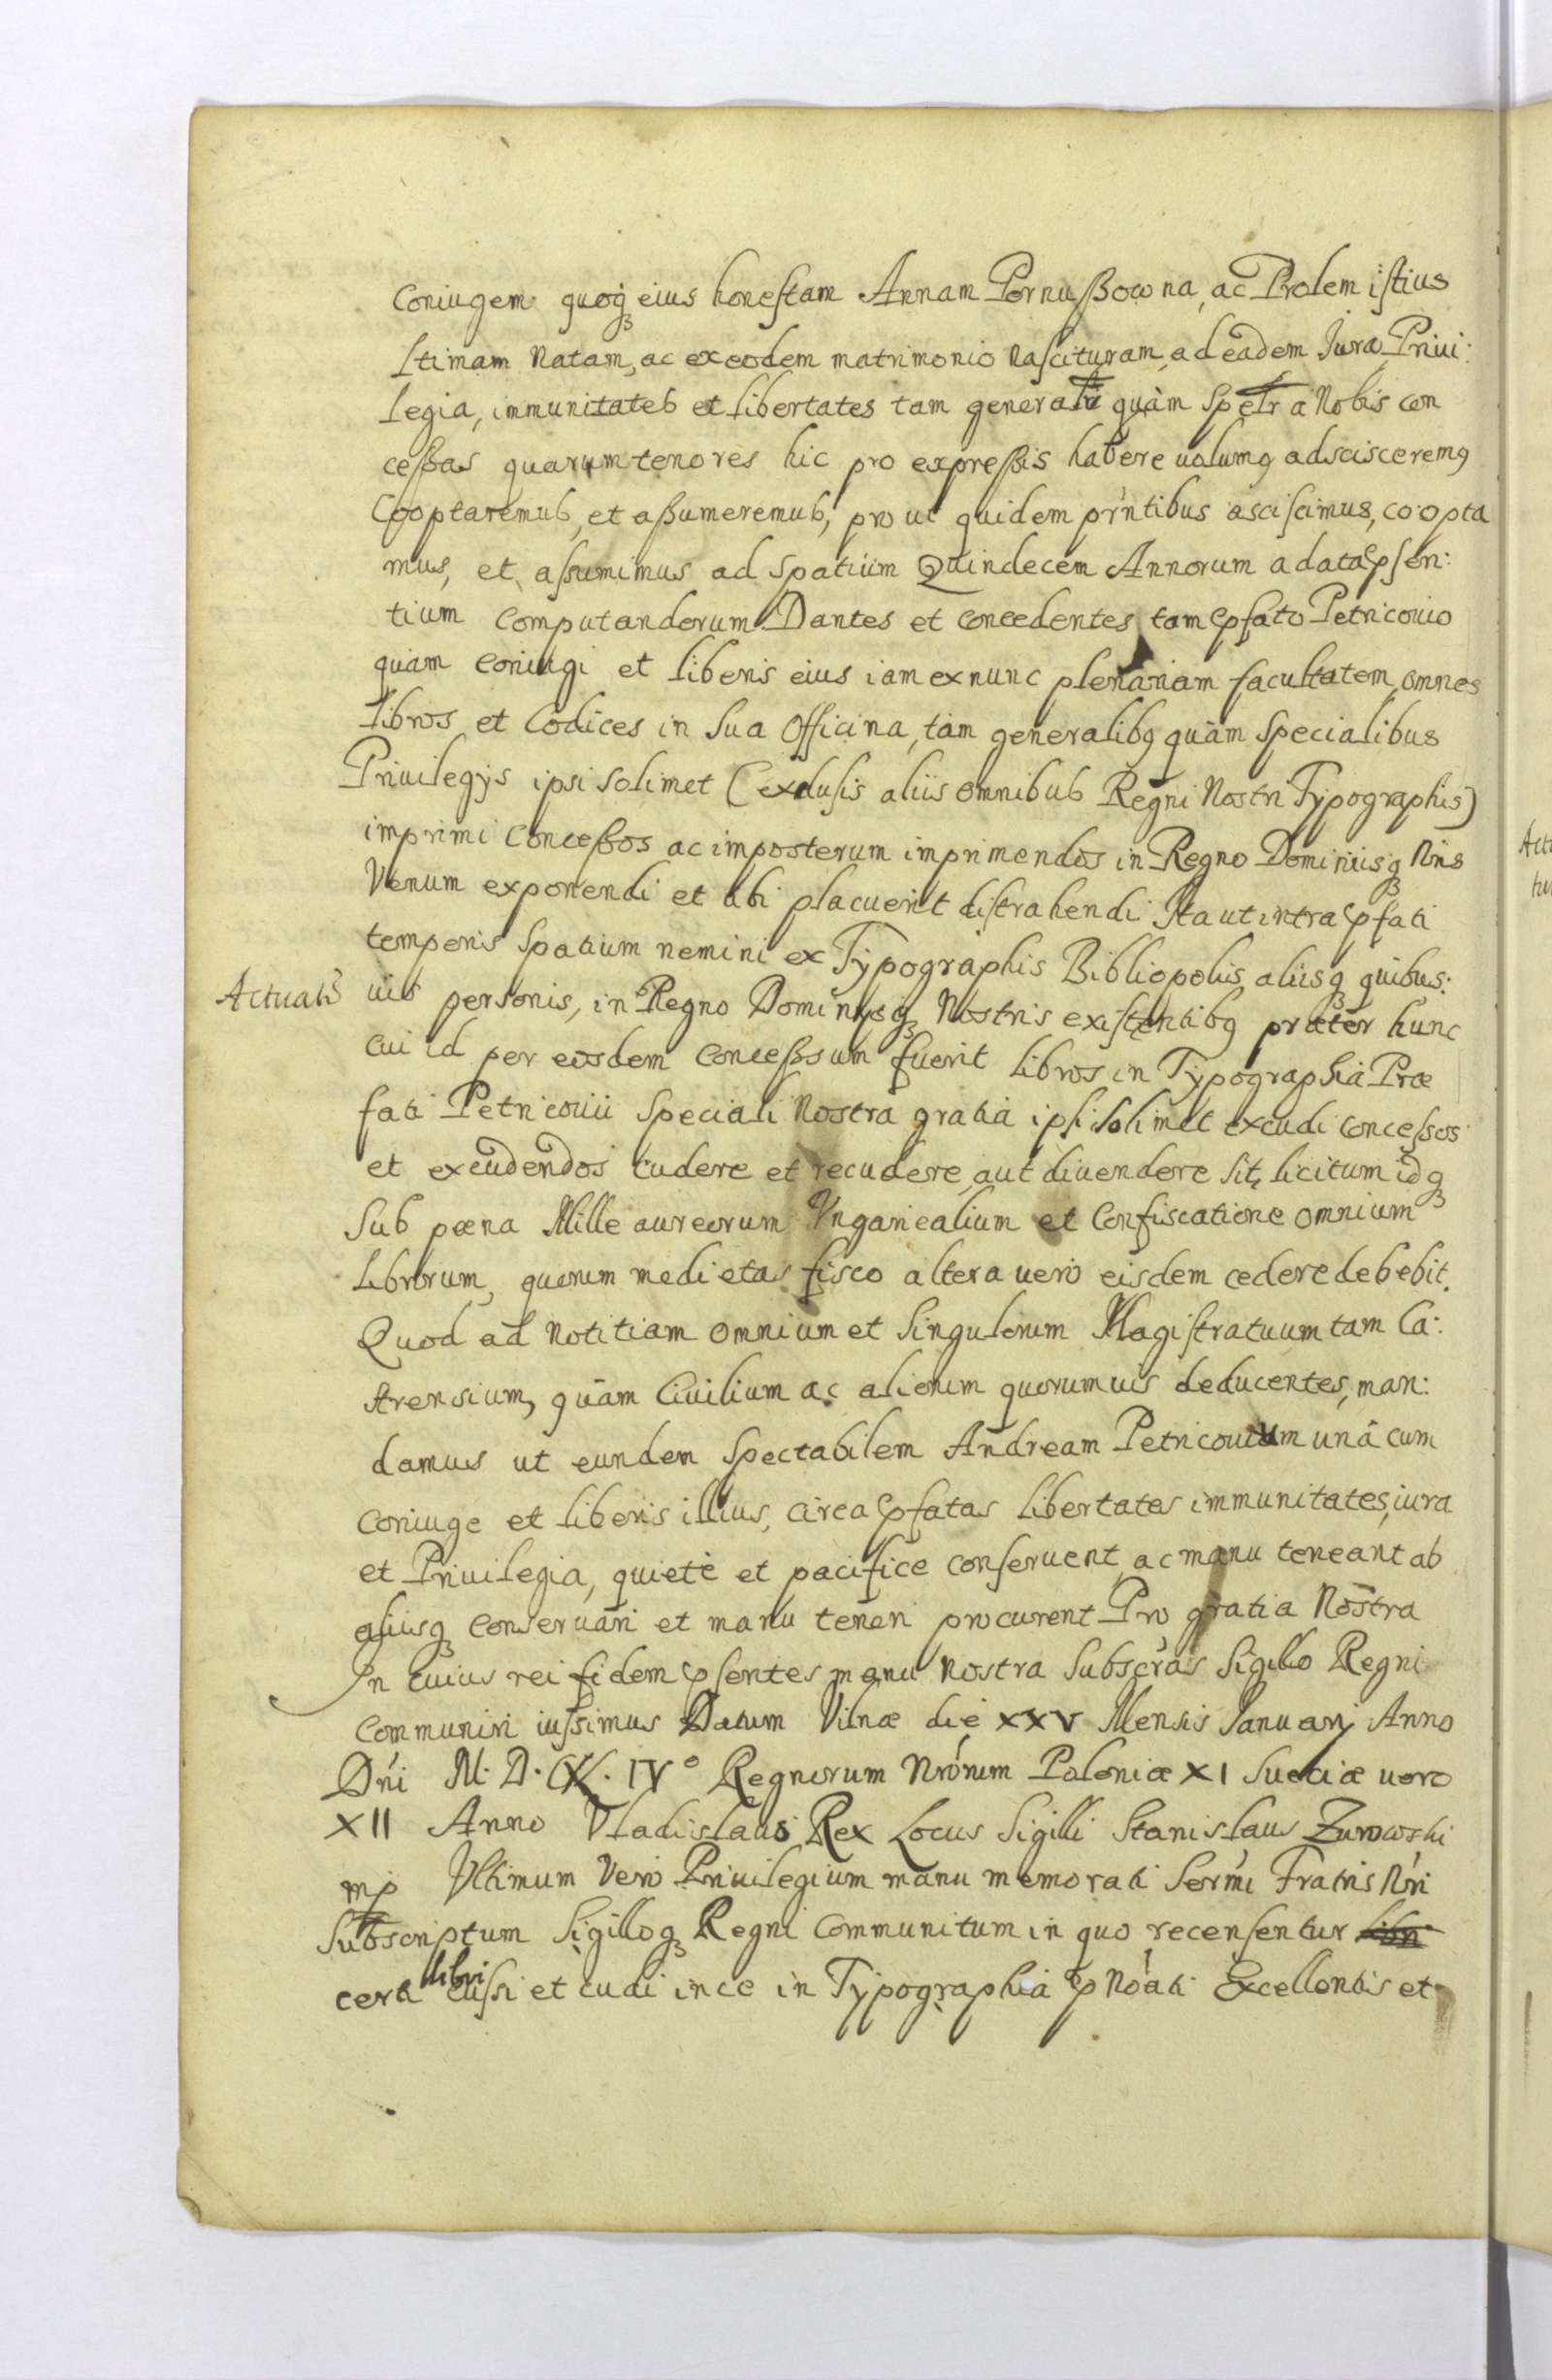 Coniugem quoqꝫ eius honestam Annam Pernußowna, ac Prolem istius
ltimam Natam, ac ex eodem matrimonio nascituram, ad eadem Jura Priui:
legia, immunitates et libertates tam generalr̃ quàm Spelr̃ a Nobis con
ceßas quarum tenores hic pro expreßis habere uolumꝯ adscisceremꝯ
Cooptaremus, et aßumeremus, pro ut quidem prńtibus asciscimus, coopta
mus, et assumimus ad Spatium Quindecem Annorum a data pṡen:
tium Computandorum Dantes et concedentes tam pfato Petricouio
quam Coniugi et liberis eius iam ex nunc plenariam facultatem, omnes
libros et Codices in Sua Officina, tam generalibꝯ quàm Specialibus
Priuilegijs ipsi Solimet (exclusis aliis omnibus Regni Nostri Typographis)
imprimi Conceßos ac imposterum imprimendos in Regno Dominiisqꝫ Nris
Venum exponendi et ubi placuerit distrahendi Ita ut intra pfati
temporis Spatium nemini ex Typographis Bibliopolis aliisqꝫ quibus:
Actuatis uis personis, in Regno Dominijsqꝫ Nostris existentibꝯ præter hunc
Cui id per eosdem Conceßsum fuerit Libros in Typographia Præ
fati Petricouii Speciali Nostra gratia ipsi Solimet excudi Concessos
et excudendos cudere et recudere, aut diuendere Sit licitum idqꝫ
Sub pæna Mille aureorum Vngaricalium et Confiscatione omnium
Librorum, quorum medietas fisco altera uero eisdem cedere debebit.
Quod ad Notitiam omnium et Singulorum Magistratuum tam Ca:
strensium, quàm Ciuilium ac aliorum quorumuis deducentes, man:
damus ut eundem Spectabilem Andream Petricouium unâ cum
Coniuge et liberis illius, circa pfatas libertates immunitates, iura
et Priuilegia, quietè et pacifice conseruent, ac manu teneant ab
aliisqꝫ Conseruari et manu teneri procurent Pro gratia Nostra
In cuius rei fidem psentes manu nostra Subscrás Sigillo Regni
Communiri iussimus Datum Vilnæ die XXV Mensis Januarij Anno
Dńi M.D.CXL.IVº Regnorum Nrórum Poloniæ XI Sueciæ uero
XII Anno Vladislaus Rex Locus Sigilli Stanislaus Zurowski
mp Vltimum Vero Priuilegium manu memorati Serm̃i Fratris Nri
Subscriptum Sigilloqꝫ Regni Communitum in quo recensentur libri
certi libri cussi et cudi incę in Typographia pnoáti Excellentis et